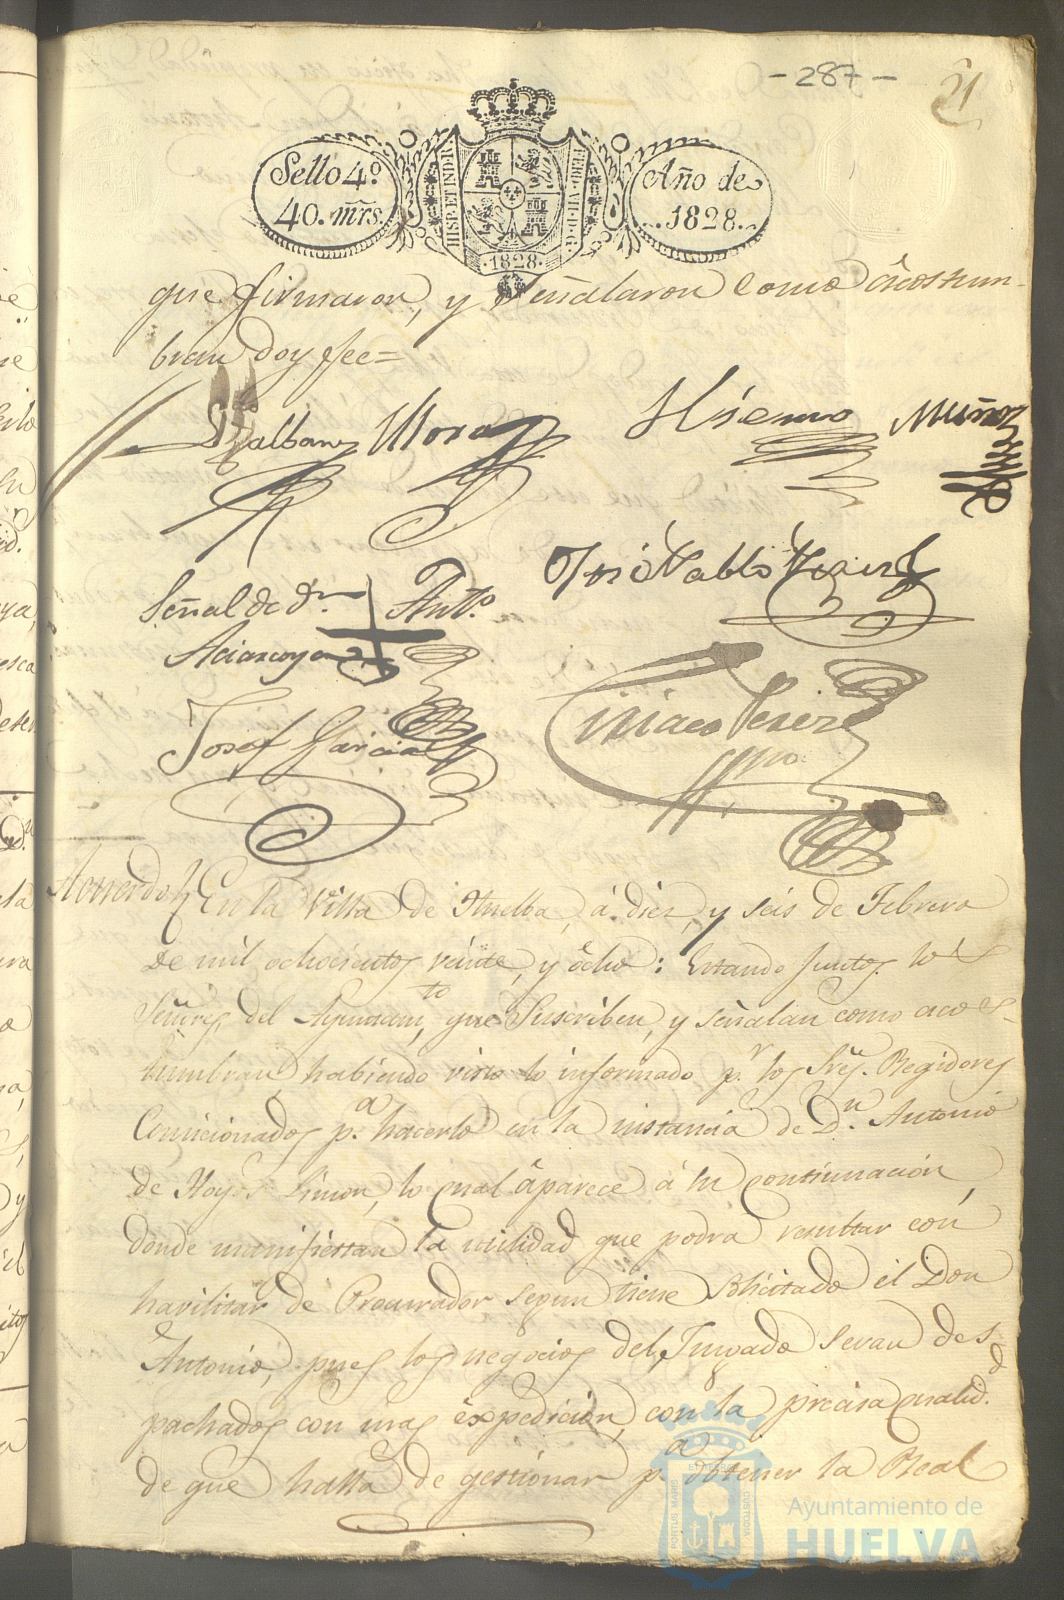 - 287 -
21
Sello 4º
40. mrs.
HISP. ET IND. R.
FERD. VII. D. G.
1828.
Año de
1828.
que firmaron, y señalaron como âcostum-
bran doy fee=
Galbany Mora
Muñoz
José Pablo Perez
Señal de dn. Anto.
Aciascoya
Josef Garcia
Ciriaco Perez
Acuerdo En la Villa de Huelba, á diez, y seis de Febrero
de mil ochocientos veinte, y ôcho: Estando juntos los
Señores del Ayuntamto, que Suscriben, y señalan como acos-
tumbran habiendo visto lo informado pr. los Sres. Regidores
Comicionados pa. hacerlo en la instancia de Dn. Antonio
de Hoyos Limon, lo cual âparece á su continuación,
donde manifiestan la utilidad que podrá resultar con
havilitar de Procurador segun tiene solicitado el Don
Antonio, pues los negocios del Jusgado seran des-
pachados con mas êxpedicion, con la precisa cualidd.
de que halla de gestionar pa. obtener la Real
PORTUS MARIS
ET TERRAE
CUSTODIA
Ayuntamiento de
HUELVA